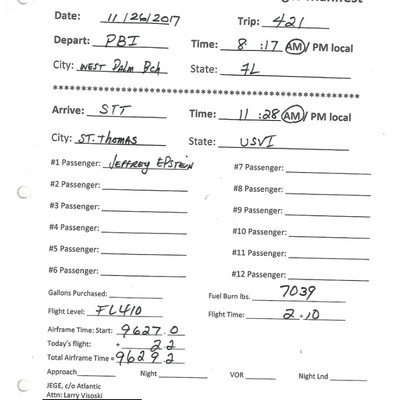 Manifest
Date: 11/26/2017 Trip: 421
Depart: PBI Time: 8 :17 AM / PM local
City: WEST Palm Bch State: FL
**************************************************
Arrive: STT Time: 11 :28 AM / PM local
City: ST. Thomas State: USVI
#1 Passenger: JEFFREY EPSTEIN #7 Passenger:
#2 Passenger: #8 Passenger:
#3 Passenger: #9 Passenger:
#4 Passenger: #10 Passenger:
#5 Passenger: #11 Passenger:
#6 Passenger: #12 Passenger:
Gallons Purchased: Fuel Burn lbs. 7039
Flight Level: FL410 Flight Time: 2+10
Airframe Time: Start: 9627.0
Today's flight: + 2.2
Total Airframe Time = 9629.2
Approach Night VOR Night Lnd
JEGE, c/o Atlantic
Attn: Larry Visoski